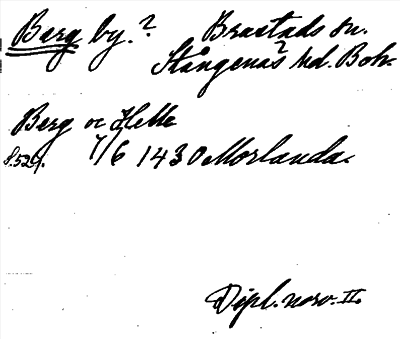 Berg by.? Brastads sn.
Stångenäs? hd. Boh.
Berg oc Helle
s. 529. 7/6 1430 Morlanda.
Dipl. norv. II.